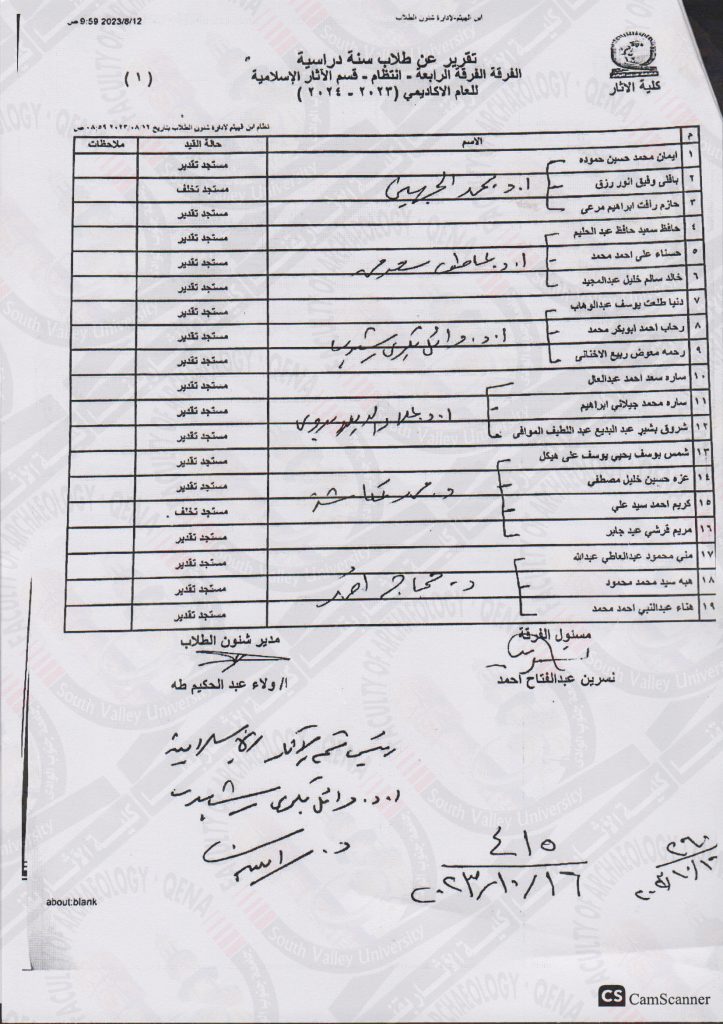 ابن الهيثم-لادارة شئون الطلاب
9:59 2023/8/12 ص
كلية الآثار
تقرير عن طلاب سنة دراسية
الفرقة الفرقة الرابعة - انتظام - قسم الآثار الإسلامية
( ١ )
للعام الاكاديمي (٢٠٢٣ - ٢٠٢٤ )
نظام ابن الهيثم لادارة شئون الطلاب بتاريخ ٢٠٢٣/٠٨/١٢ ٠٨:٥٩ ص
م الاسم حالة القيد ملاحظات
١ ايمان محمد حسين حموده مستجد تقدير
٢ بافلى وفيق انور رزق مستجد تخلف
٣ حازم رأفت ابراهيم مرعى مستجد تقدير
أ.د. محمد الجهيني
٤ حافظ سعيد حافظ عبد الحليم مستجد تقدير
٥ حسناء على احمد محمد مستجد تقدير
٦ خالد سالم خليل عبدالمجيد مستجد تقدير
أ.د. عاطف سعد محمد
٧ دنيا طلعت يوسف عبدالوهاب مستجد تقدير
٨ رحاب احمد ابوبكر محمد مستجد تقدير
٩ رحمه معوض ربيع الاخنانى مستجد تقدير
أ.د. وائل بكري رشيدي
١٠ ساره سعد احمد عبدالعال مستجد تقدير
١١ ساره محمد جيلاني ابراهيم مستجد تقدير
١٢ شروق بشير عبد البديع عبد اللطيف الموافى مستجد تقدير
أ.د. علاء الدين بدوي
١٣ شمس يوسف يحيي يوسف على هيكل مستجد تقدير
١٤ عزه حسين خليل مصطفي مستجد تقدير
١٥ كريم احمد سيد علي مستجد تخلف
١٦ مريم قرشي عيد جابر مستجد تقدير
د. محمد عكاشة
١٧ مني محمود عبدالعاطي عبدالله مستجد تقدير
١٨ هبه سيد محمد محمود مستجد تقدير
١٩ هناء عبدالنبي احمد محمد مستجد تقدير
د. حجاج أحمد
مسئول الفرقة مدير شئون الطلاب
نسرين عبدالفتاح احمد ا/ ولاء عبد الحكيم طه
رئيس قسم الآثار الإسلامية
أ.د. وائل بكري رشيدي
٤١٥
٢٠٢٣/١٠/١٦
٢٦٠
about:blank
CS CamScanner
FACULTY OF ARCHAEOLOGY - QENA
South Valley University